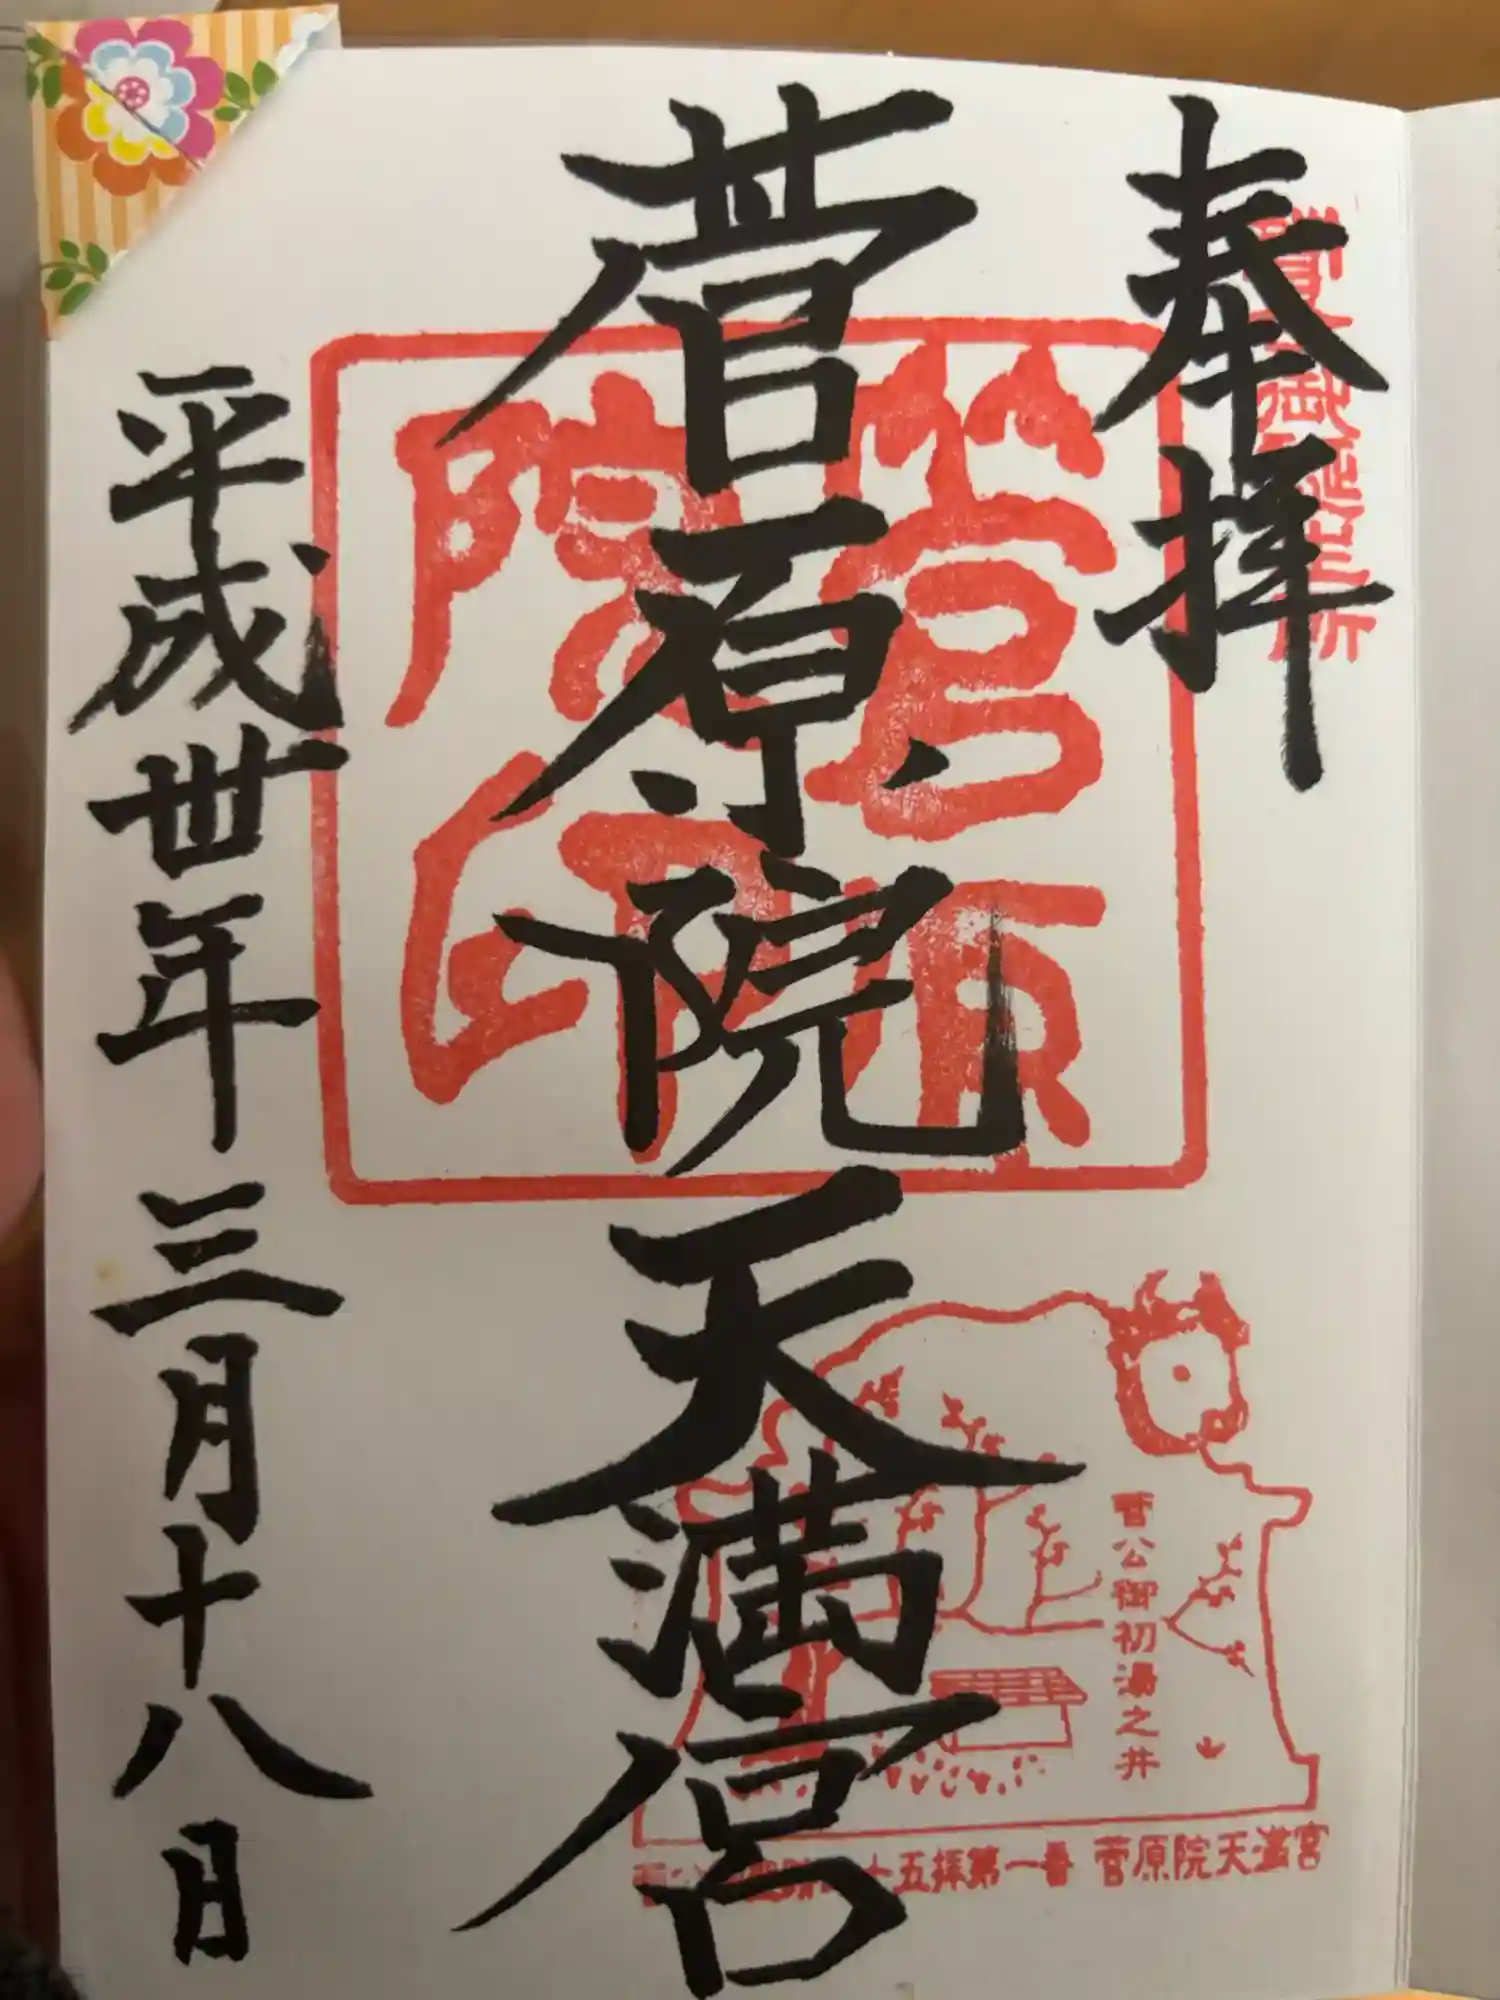 奉拝
菅原院天満宮
平成卅年三月十八日
菅原院印
菅公御初湯之井
十五拝第一番 菅原院天満宮